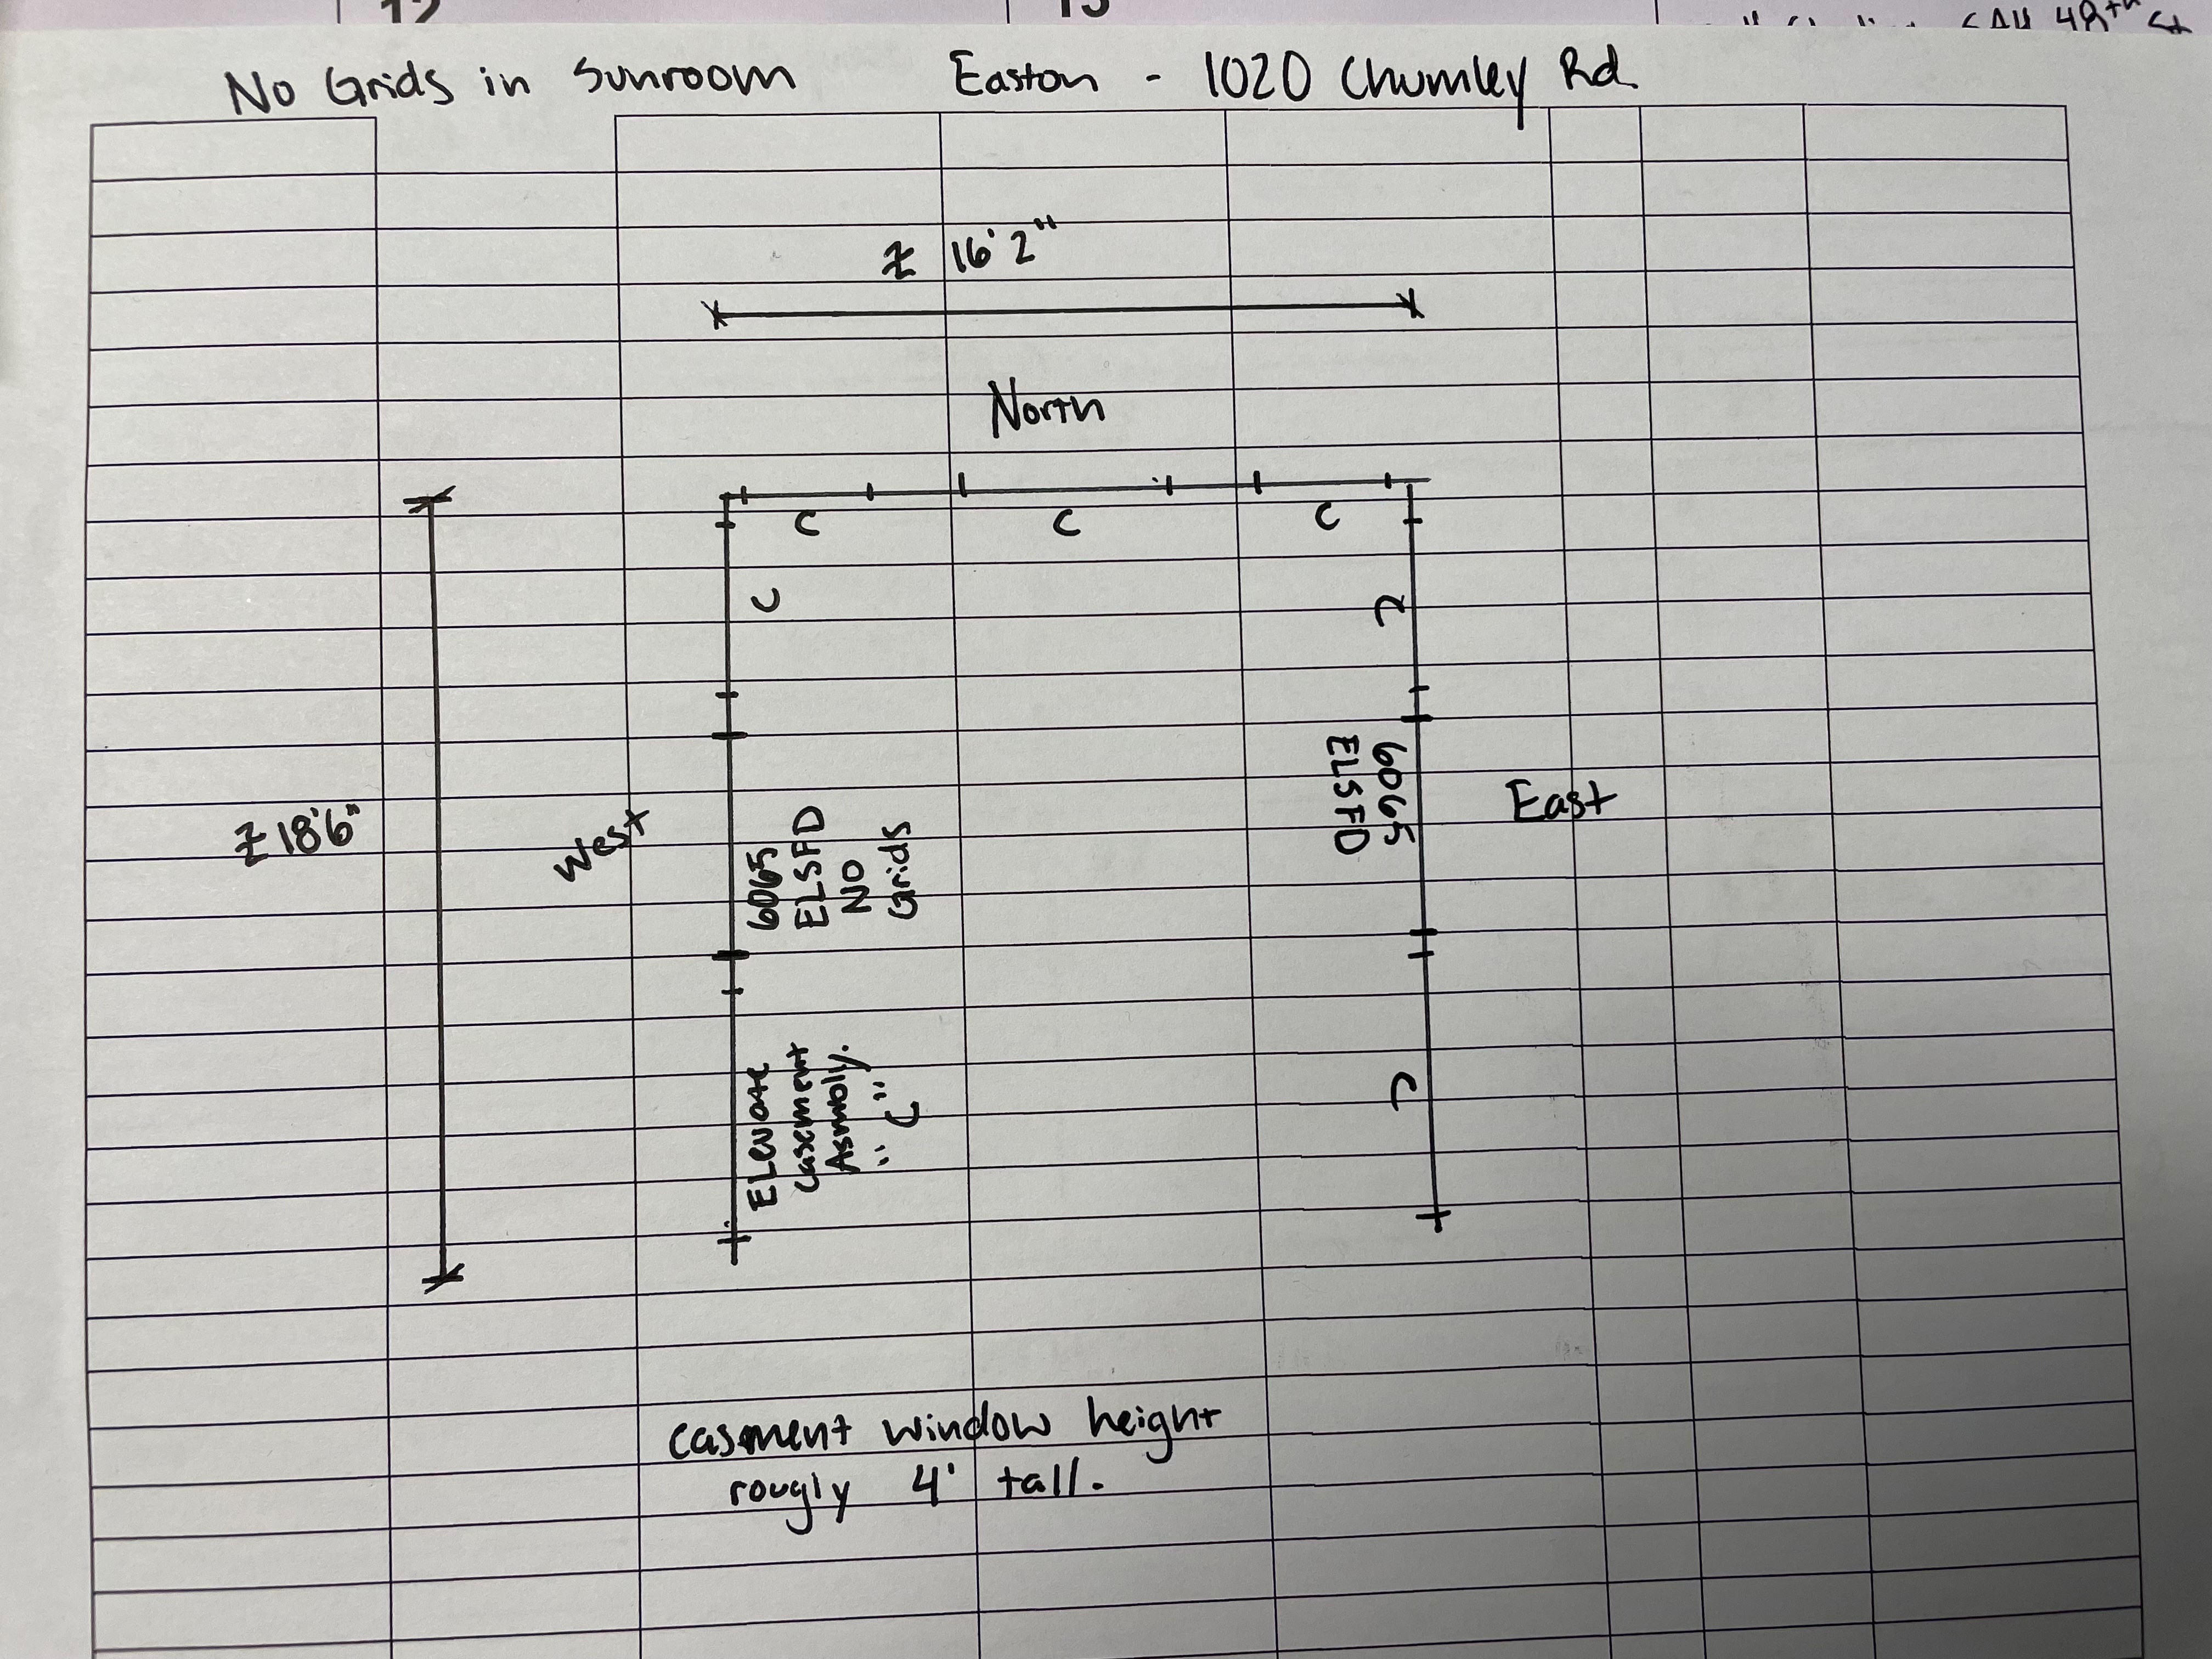 12
13
48th St
No Grids in Sunroom Easton - 1020 Chumley Rd.
16' 2"
North
C C C
C
C
6065
ELSFD
East
West
18'6"
6065
ELSFD
NO
Grids
ELevate
Casement
Asmbly.
"C"
C
casment window height
rougly 4' tall.